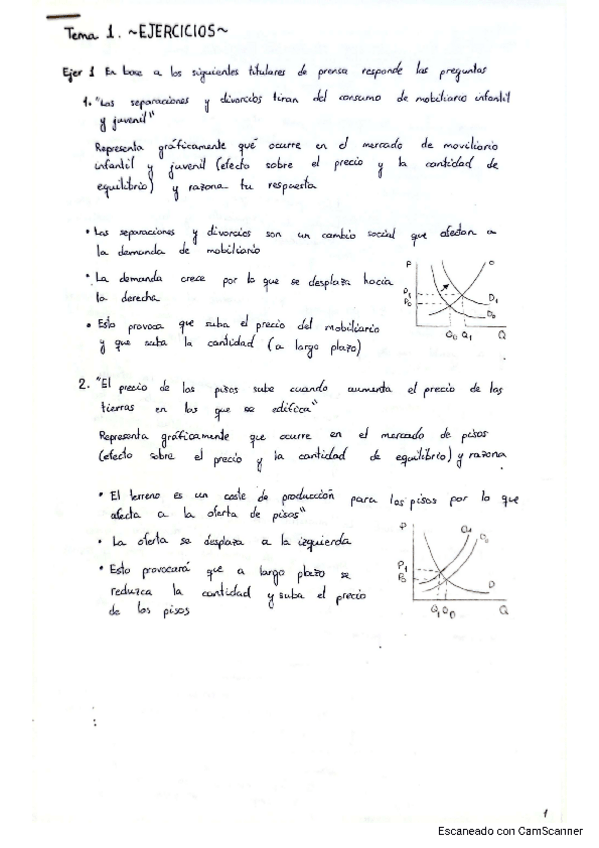 Tema 1. ~EJERCICIOS~
Ejer 1 En base a los siguientes titulares de prensa responde las preguntas
1. "Las separaciones y divorcios tiran del consumo de mobiliario infantil
y juvenil"
Representa gráficamente qué ocurre en el mercado de moviliario
infantil y juvenil (efecto sobre el precio y la cantidad de
equilibrio) y razona tu respuesta
• Las separaciones y divorcios son un cambio social que afectan a
la demanda de mobiliario
• La demanda crece por lo que se desplaza hacia
la derecha
• Esto provoca que suba el precio del mobiliario
y que suba la cantidad (a largo plazo)
P O
P1
P0
D1
D0
Q0 Q1 Q
2. "El precio de los pisos sube cuando aumenta el precio de las
tierras en las que se edifica"
Representa gráficamente que ocurre en el mercado de pisos
(efecto sobre el precio y la cantidad de equilibrio) y razona
• El terreno es un coste de producción para los pisos por lo que
afecta a la oferta de pisos"
• La oferta se desplaza a la izquierda
• Esto provocará que a largo plazo se
reduzca la cantidad y suba el precio
de los pisos
P O1 O0
P1
P0
D
Q1 Q
1
Escaneado con CamScanner